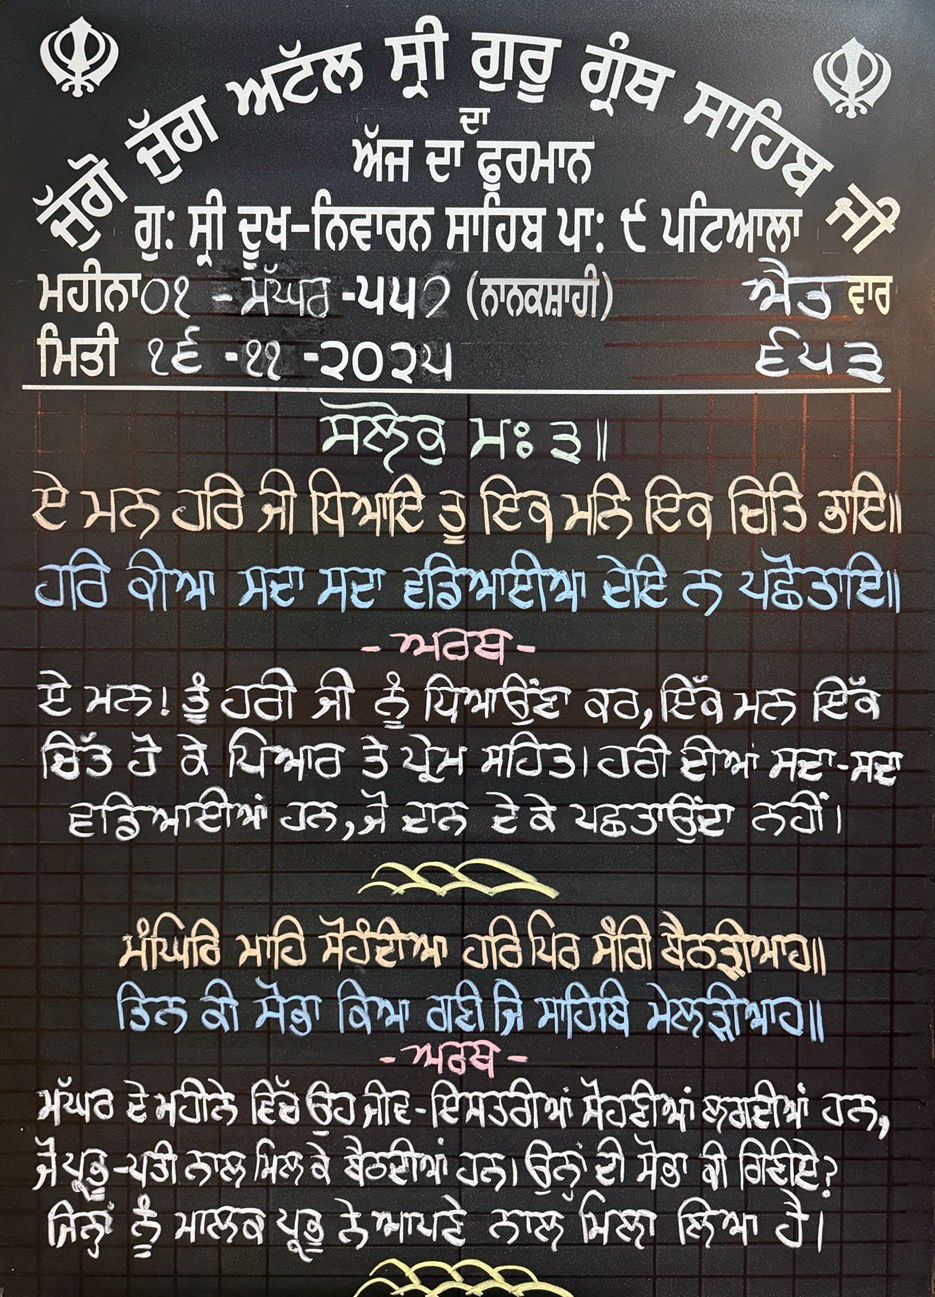 ਜੁੱਗੋ ਜੁੱਗ ਅਟੱਲ ਸ੍ਰੀ ਗੁਰੂ ਗ੍ਰੰਥ ਸਾਹਿਬ ਜੀ
ਦਾ
ਅੱਜ ਦਾ ਫੁਰਮਾਨ
ਗੁ: ਸ੍ਰੀ ਦੂਖ-ਨਿਵਾਰਨ ਸਾਹਿਬ ਪਾ: ੯ ਪਟਿਆਲਾ
ਮਹੀਨਾ ੦੧ - ਮੱਘਰ -੫੫੭ (ਨਾਨਕਸ਼ਾਹੀ) ਐਤ ਵਾਰ
ਮਿਤੀ ੧੬ -੧੧ -੨੦੨੫ ੬੫੩
ਸਲੋਕੁ ਮਃ ੩॥
ਏ ਮਨ ਹਰਿ ਜੀ ਧਿਆਇ ਤੂ ਇਕ ਮਨਿ ਇਕ ਚਿਤਿ ਭਾਇ॥
ਹਰਿ ਕੀਆ ਸਦਾ ਸਦਾ ਵਡਿਆਈਆ ਦੇਇ ਨ ਪਛੋਤਾਇ॥
- ਅਰਥ -
ਏ ਮਨ! ਤੂੰ ਹਰੀ ਜੀ ਨੂੰ ਧਿਆਉਂਣਾ ਕਰ, ਇੱਕ ਮਨ ਇੱਕ
ਚਿੱਤ ਹੋ ਕੇ ਪਿਆਰ ਤੇ ਪ੍ਰੇਮ ਸਹਿਤ। ਹਰੀ ਦੀਆਂ ਸਦਾ-ਸਦਾ
ਵਡਿਆਈਆਂ ਹਨ, ਜੋ ਦਾਨ ਦੇ ਕੇ ਪਛਤਾਉਂਦਾ ਨਹੀਂ।
ਮੰਘਿਰਿ ਮਾਹਿ ਸੋਹੰਦੀਆ ਹਰਿ ਪਿਰ ਸੰਗਿ ਬੈਠੜੀਆਹ॥
ਤਿਨ ਕੀ ਸੋਭਾ ਕਿਆ ਗਣੀ ਜਿ ਸਾਹਿਬਿ ਮੇਲੜੀਆਹ॥
- ਅਰਥ -
ਮੱਘਰ ਦੇ ਮਹੀਨੇ ਵਿੱਚ ਉਹ ਜੀਵ-ਇਸਤਰੀਆਂ ਸੋਹਣੀਆਂ ਲਗਦੀਆਂ ਹਨ,
ਜੋ ਪ੍ਰਭੂ-ਪਤੀ ਨਾਲ ਮਿਲ ਕੇ ਬੈਠਦੀਆਂ ਹਨ। ਉਨ੍ਹਾਂ ਦੀ ਸੋਭਾ ਕੀ ਗਿਣੀਏ?
ਜਿਨ੍ਹਾਂ ਨੂੰ ਮਾਲਕ ਪ੍ਰਭੂ ਨੇ ਆਪਣੇ ਨਾਲ ਮਿਲਾ ਲਿਆ ਹੈ।